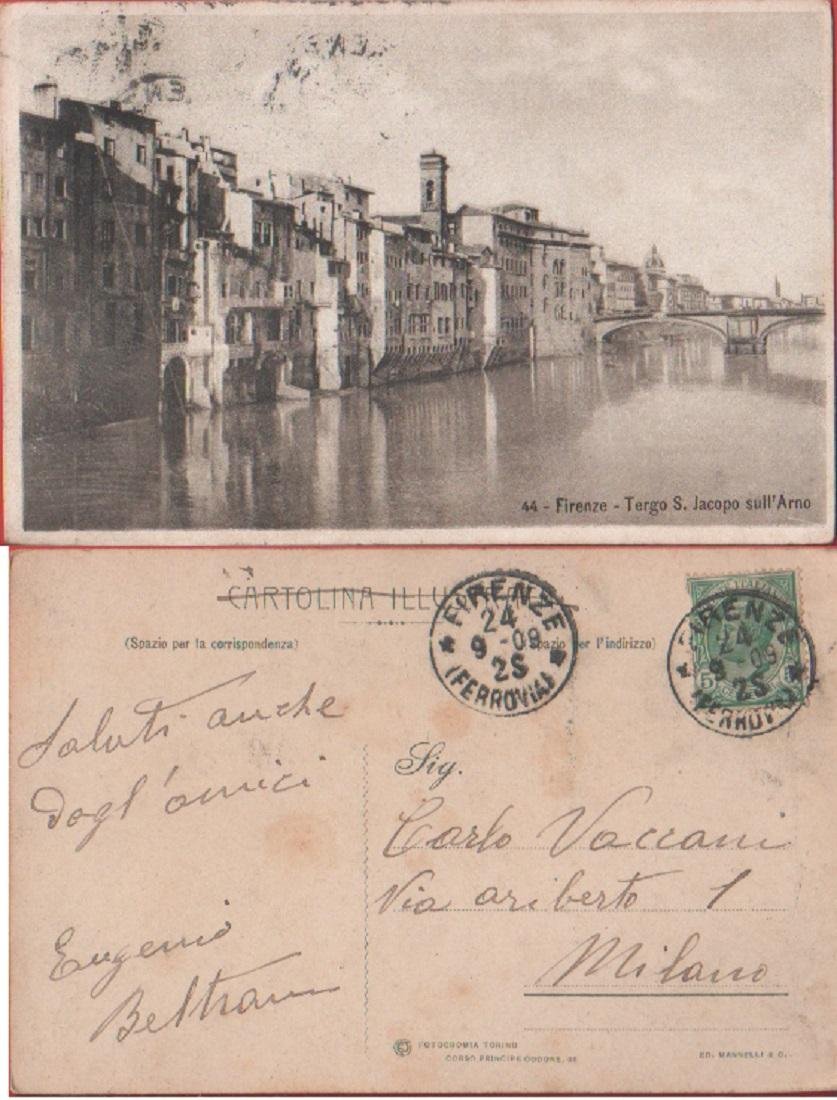 44 - Firenze - Tergo S. Jacopo sull'Arno
CARTOLINA
(Spazio per la corrispondenza)
per l'indirizzo)
FIRENZE
24
9 - 09
2S
(FERROVIA)
FIRENZE
24
9 09
2S
(FERROVIA)
5
Saluti anche
dagl'amici
Eugenio
Beltrami
Sig.
Carlo Vaccani
Via ariberto 1
Milano
FOTOCROMIA TORINO
CORSO PRINCIPE ODDONE,
ED. MANNELLI & C.